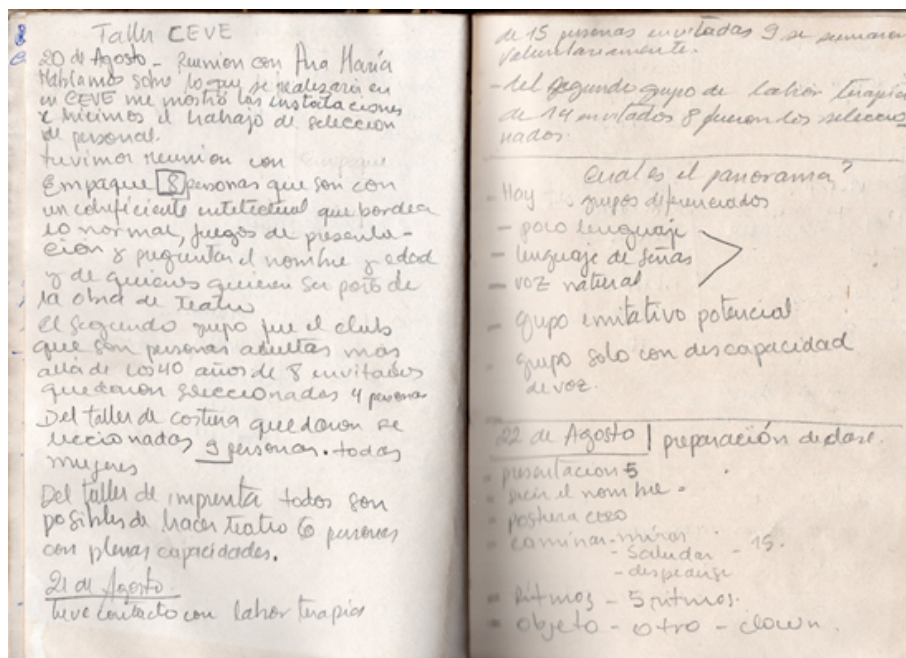 Taller CEVE
20 de Agosto - Reunion con Ana María
Hablamos sobre lo que se realizaria en
en CEVE me mostró las instalaciones
e hicimos el trabajo de selección
de personal.
tuvimos reunion con
Empaque 8 personas que son con
un coheficiente intelectual que bordea
lo normal, juegos de presenta-
ción y preguntar el nombre y edad
y de quienes quieren ser parte de
la obra de teatro
El segundo grupo fue el club
que son personas adultas mas
allá de los 40 años de 8 invitados
quedaron seleccionadas 4 personas
Del taller de costura quedaron se
leccionadas 9 personas. todas
mujeres
Del taller de imprenta todos son
posibles de hacer teatro 6 personas
con plenas capacidades.
21 de Agosto.
tuve contacto con labor terapia
de 15 personas invitadas 9 se sumaron
voluntariamente.
- del segundo grupo de labor terapia
de 14 invitados 8 fueron los seleccio
nados.
Cual es el panorama?
- Hay grupos diferenciados
- poco lenguaje
- lenguaje de señas
- voz natural
- grupo imitativo potencial
- grupo solo con discapacidad
de voz.
22 de Agosto | preparación de clase.
- presentacion 5
- decir el nombre -
- postura
- caminar - mirar
- saludar - 15.
- despedirse
- Ritmos - 5 ritmos.
- objeto - otro - clown.